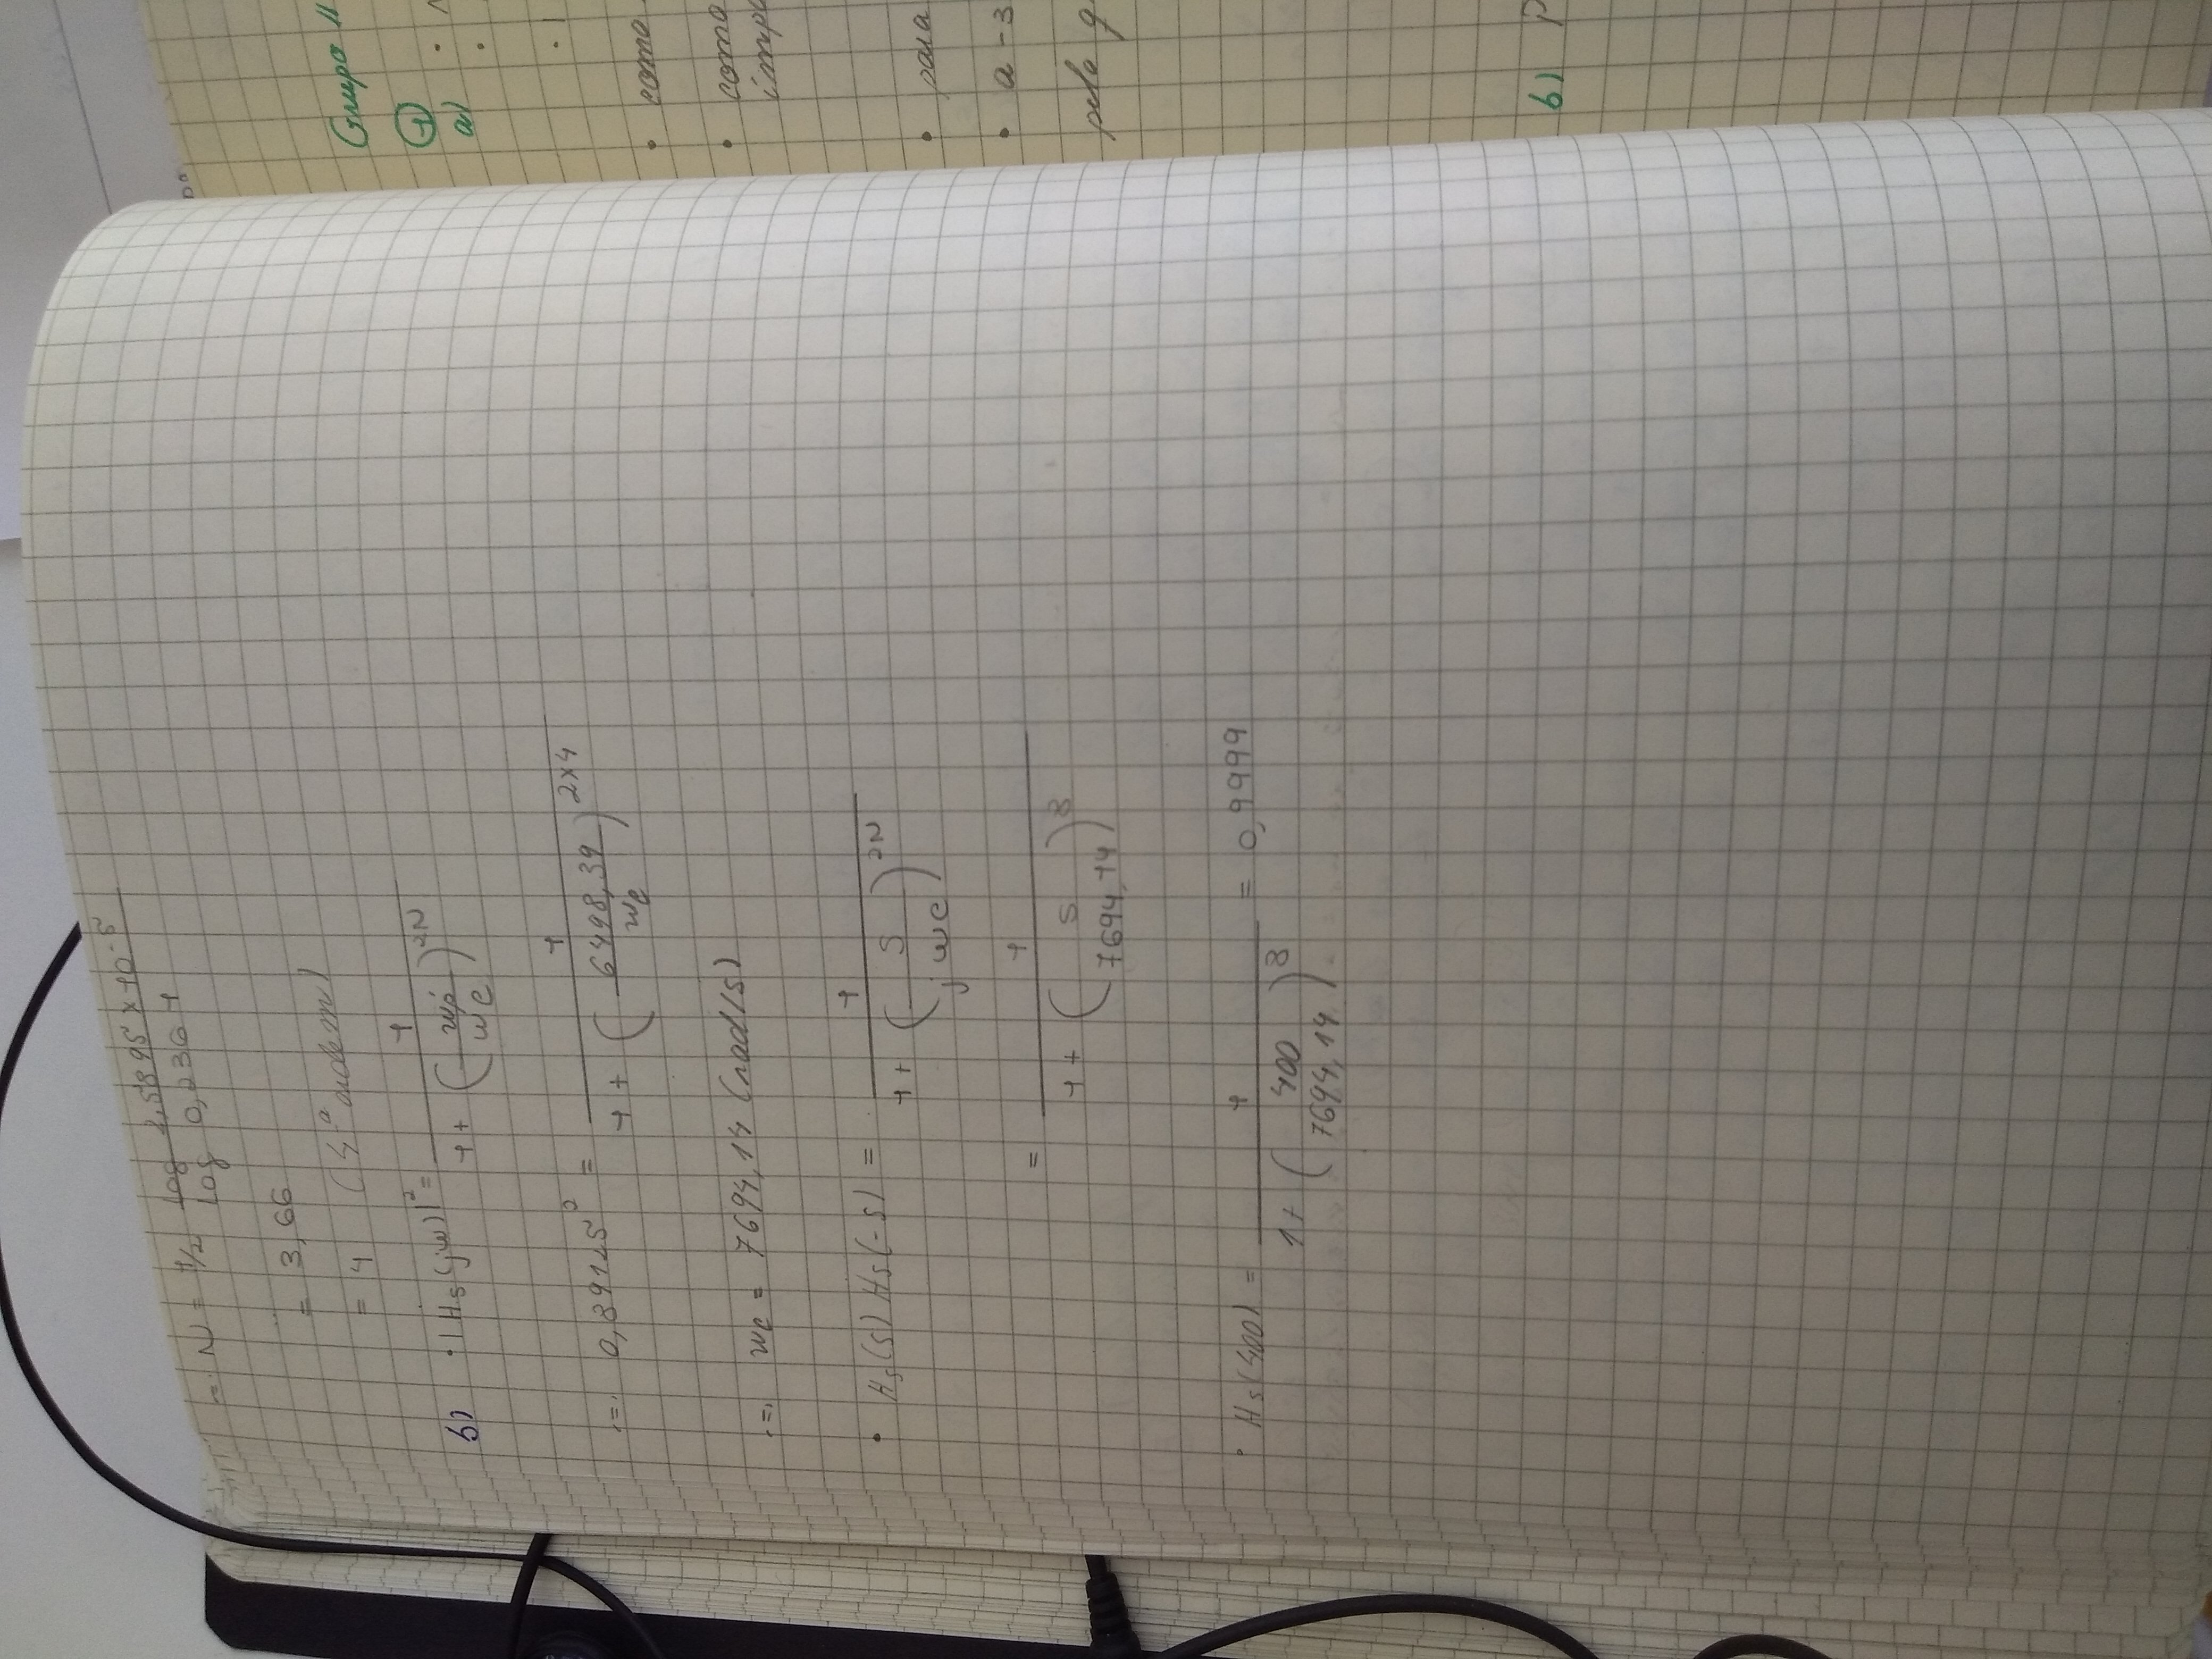 ∴ N = 1/2 log 1,5895 x 10^-5 / log 0,2361
= 3,66
= 4 (4ª ordem)
b) · |Hs(jw)|² = 1 / (1 + (wp' / wc)^2N)
∴ 0,89125² = 1 / (1 + (6498,39 / wc)^2x4)
∴ wc = 7694,14 (rad/s)
· Hs(s) Hs(-s) = 1 / (1 + (s / jwc)^2N)
= 1 / (1 + (s / 7694,14)^8)
· Hs(400) = 1 / (1 + (400 / 7694,14)^8) = 0,9999
Grupo II
1
a) ·
·
·
· como
· como
· para
· a -3
pela
b) P